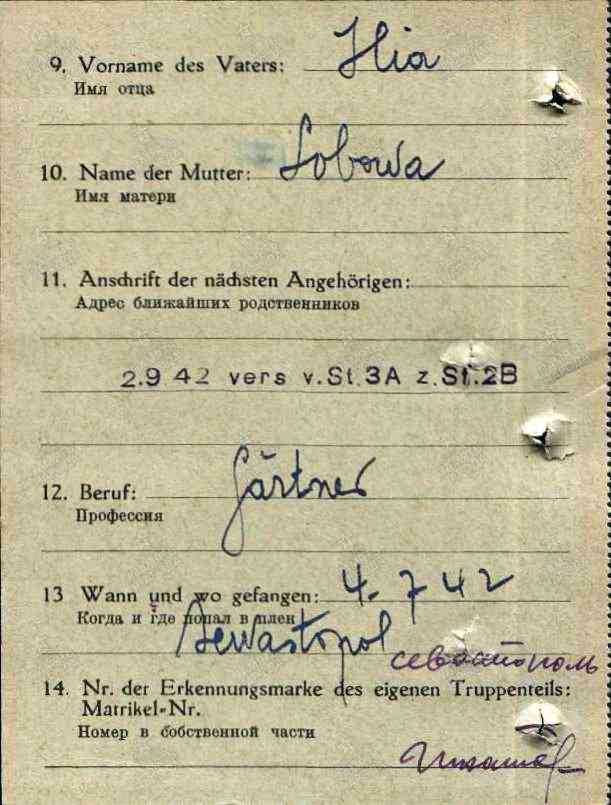 9. Vorname des Vaters: Ilia
Имя отца
10. Name der Mutter: Lobowa
Имя матери
11. Anschrift der nächsten Angehörigen:
Адрес ближайших родственников
2.9 42 vers v.St.3A z.St.2B
12. Beruf: Gärtner
Профессия
13 Wann und wo gefangen: 4.7 42
Когда и где попал в плен
Sewastopol
севастополь
14. Nr. der Erkennungsmarke des eigenen Truppenteils:
Matrikel-Nr.
Номер в собственной части